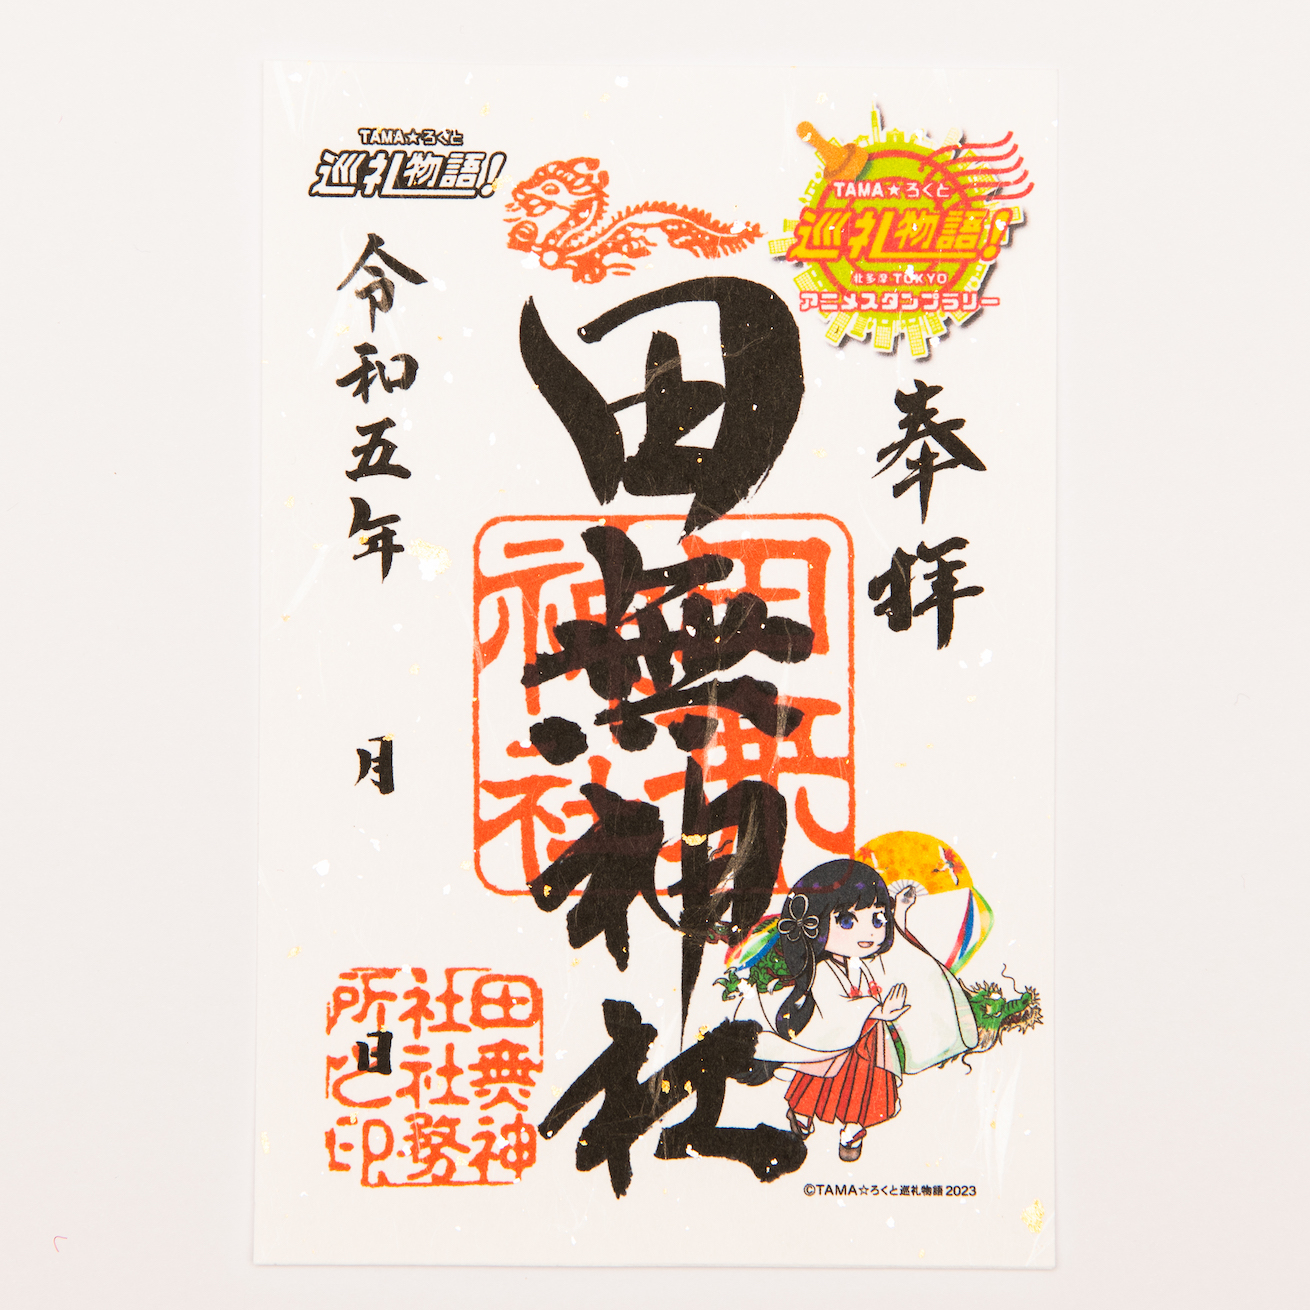 TAMA☆ろくと
巡礼物語!
TAMA★ろくと
巡礼物語!
北多摩TOKYO
アニメスタンプラリー
奉拝
田無神社
田無
神社
令和五年
月
日
田無神
社社務
所之印
©TAMA☆ろくと巡礼物語2023